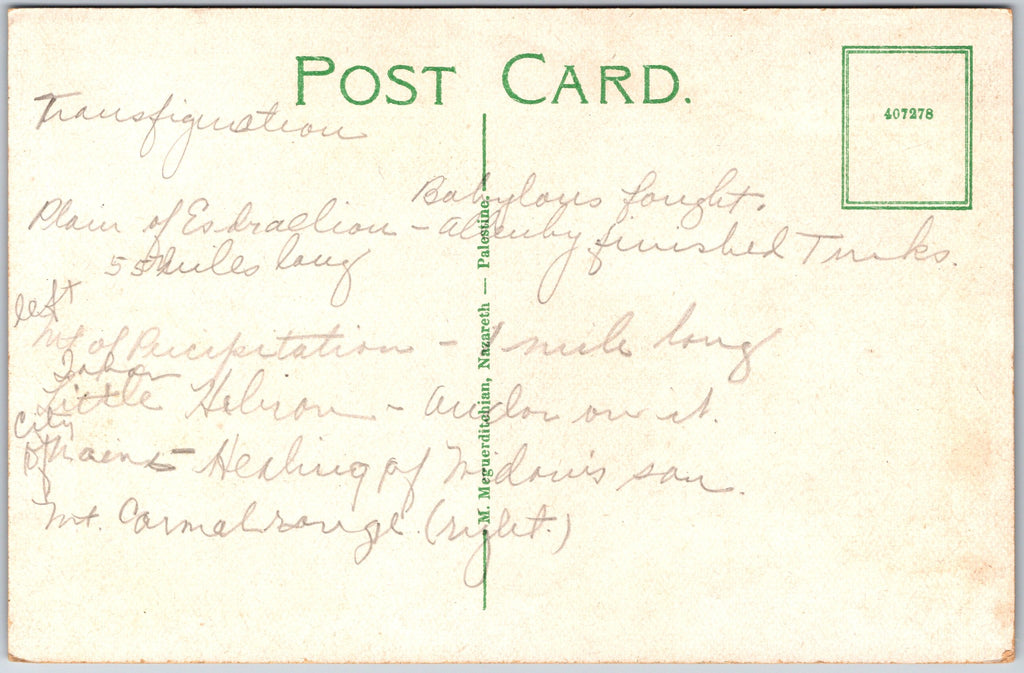 POST CARD.
407278
Transfiguration
Babylons fought.
Plain of Esdraelion - Allenby finished Turks.
55 miles long
left
Mt of Precipitation - 1 mile long
Tabor
Little Hebron - on it.
City
of Naens - Healing of Widow's son.
Mt. Carmel range (right.)
M. Meguerditchian, Nazareth — Palestine.